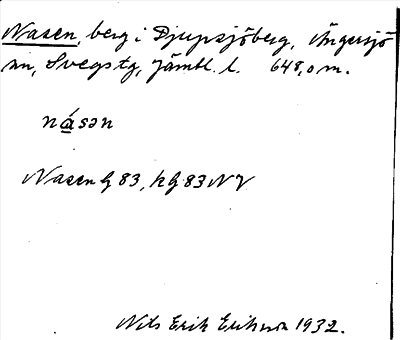 Nasen, berg i Djupsjöberg, Ängersjö
sn, Svegs tg, Jämtl. l. 648,0 m.
násən
Nasen G 83, kG 83 NV
Nils Erik Erikson 1932.